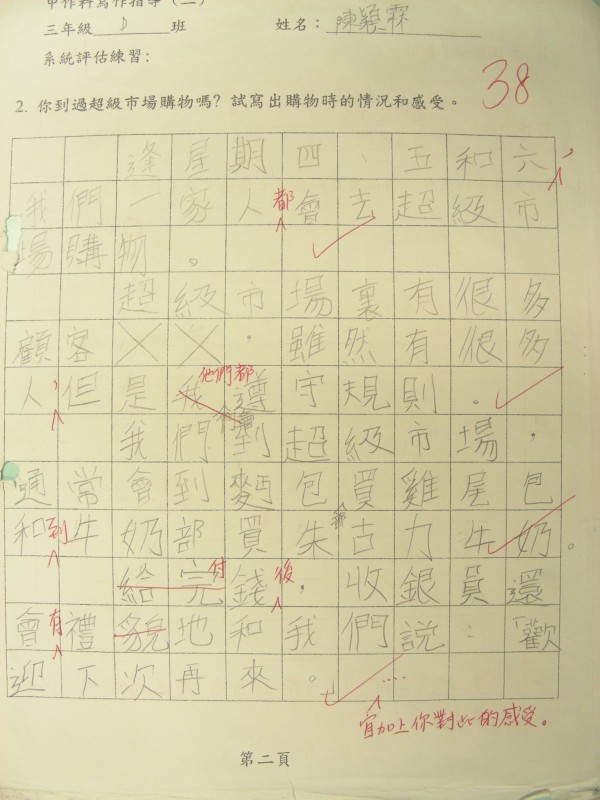 中作科寫作指導（二）
三年級 D 班 姓名：陳穎霖
系統評估練習：
38
2. 你到過超級市場購物嗎？試寫出購物時的情況和感受。
逢星期四、五和六，
我們一家人都會去超級市
場購物。
超級市場裏有很多
顧客，雖然有很多
人，但是他們都遵守規則。
我們到超級市場，
通常會到麪包買雞尾包
和到牛奶部買朱古力牛奶。
給完付錢後，收銀員還
會有禮貌地和我們說：「歡
迎下次再來。」....
宜加上你對此的感受。
第二頁